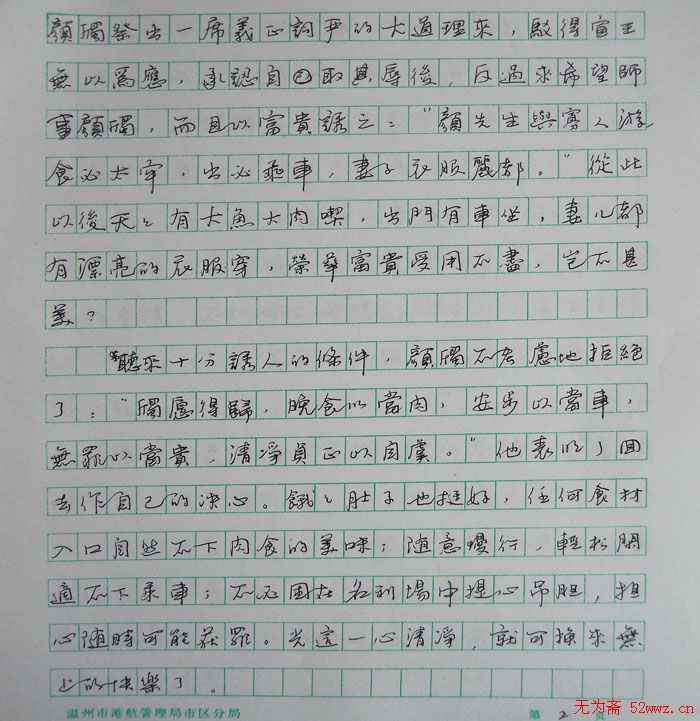 顏斶祭出一席義正詞嚴的大道理來，駁得宣王
無以爲應，承認自取其辱後，反過來希望師
事顏斶，而且以富貴誘之：“顏先生與寡人游，
食必太牢，出必乘車，妻子衣服麗都。”從此
以後天天有大魚大肉喫，出門有車坐，妻兒都
有漂亮的衣服穿，榮華富貴受用不盡，豈不甚
美？
聽來十分誘人的條件，顏斶不考慮地拒絕
了：“斶願得歸，晚食以當肉，安步以當車，
無罪以當貴，清淨貞正以自虞。”他表明了回
去作自己的决心。餓餓肚子也挺好，任何食材
入口自然不下肉食的美味；隨意慢行，輕松閑
適不下乘車；不必困在名利場中提心吊胆，担
心隨時可能获罪。光這一心清淨，就可換來無
上的快樂了。
温州市港航管理局市区分局 第 2 页
无为斋 52wwz.cn